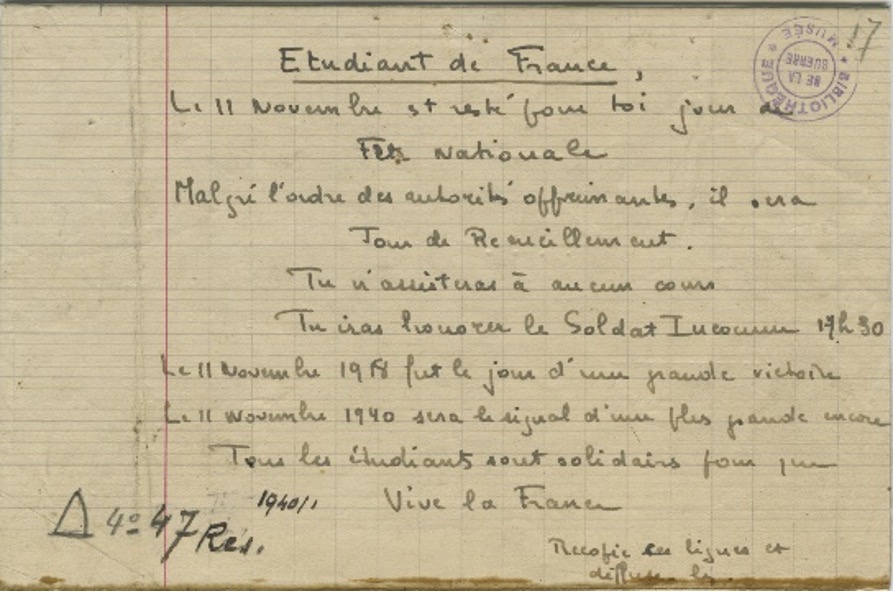 17
BIBLIOTHÈQUE * MUSÉE *
DE LA
GUERRE
Etudiant de France,
Le 11 Novembre est resté pour toi jour de
Fête Nationale
Malgré l'ordre des autorités opprimantes, il sera
Jour de Recueillement.
Tu n'assisteras à aucun cours
Tu iras honorer le Soldat Inconnu 17h30
Le 11 Novembre 1918 fut le jour d'une grande victoire
Le 11 Novembre 1940 sera le signal d'une plus grande encore
Tous les étudiants sont solidaires pour que
Vive la France
1940/1
Δ 4º 47 Res.
Recopie ces lignes et
diffuse les.